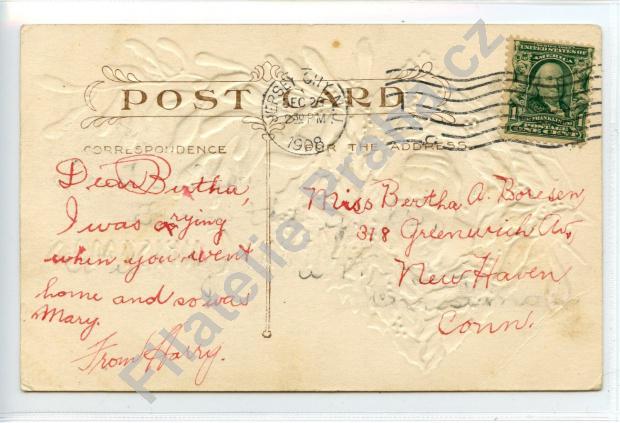 POST CARD
JERSEY CITY
DEC 26
2 30 PM
1908
UNITED STATES OF
AMERICA
FRANKLIN
POSTAGE
1 ONE CENT 1
CORRESPONDENCE
FOR THE ADDRESS
Dear Bertha,
I was crying
when you went
home and so was
Mary.
From Harry.
Miss Bertha A. Boresen,
318 Greenwich Av,
New Haven
Conn.
Filatelie Praha.cz